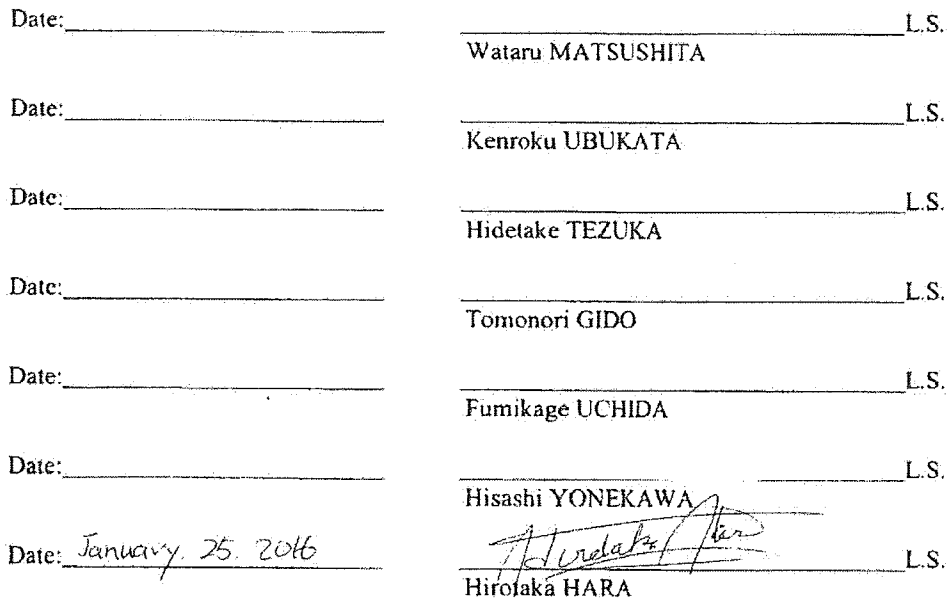 Date: L.S.
Wataru MATSUSHITA
Date: L.S.
Kenroku UBUKATA
Date: L.S.
Hidetake TEZUKA
Date: L.S.
Tomonori GIDO
Date: L.S.
Fumikage UCHIDA
Date: L.S.
Hisashi YONEKAWA
Date: January. 25. 2016 L.S.
Hirotaka HARA